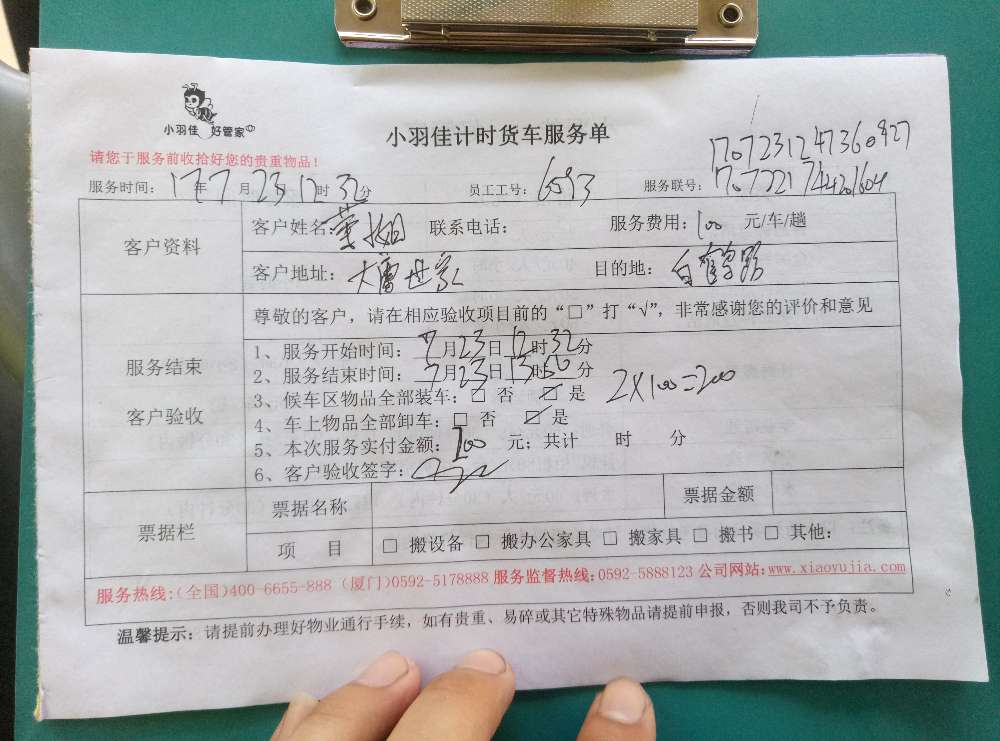 小羽佳 好管家
小羽佳计时货车服务单
请您于服务前收拾好您的贵重物品！
1707231247360927
服务时间：17年7月23日12时32分 员工工号：6093 服务联号：
客户资料 客户姓名： 联系电话： 服务费用：100 元/车/趟
客户地址：大唐世家 目的地：
尊敬的客户，请在相应验收项目前的“□”打“√”，非常感谢您的评价和意见
服务结束
客户验收
1、服务开始时间：7月23日12时32分
2、服务结束时间：7月23日13时50分
3、候车区物品全部装车：□ 否 ☑ 是 2X100=200
4、车上物品全部卸车：□ 否 ☑ 是
5、本次服务实付金额：100 元；共计 时 分
6、客户验收签字：
票据栏 票据名称 票据金额
项 目 □ 搬设备 □ 搬办公家具 □ 搬家具 □ 搬书 □ 其他：
服务热线：(全国)400-6655-888 (厦门)0592-5178888 服务监督热线：0592-5888123 公司网站：www.xiaoyujia.com
温馨提示：请提前办理好物业通行手续，如有贵重、易碎或其它特殊物品请提前申报，否则我司不予负责。